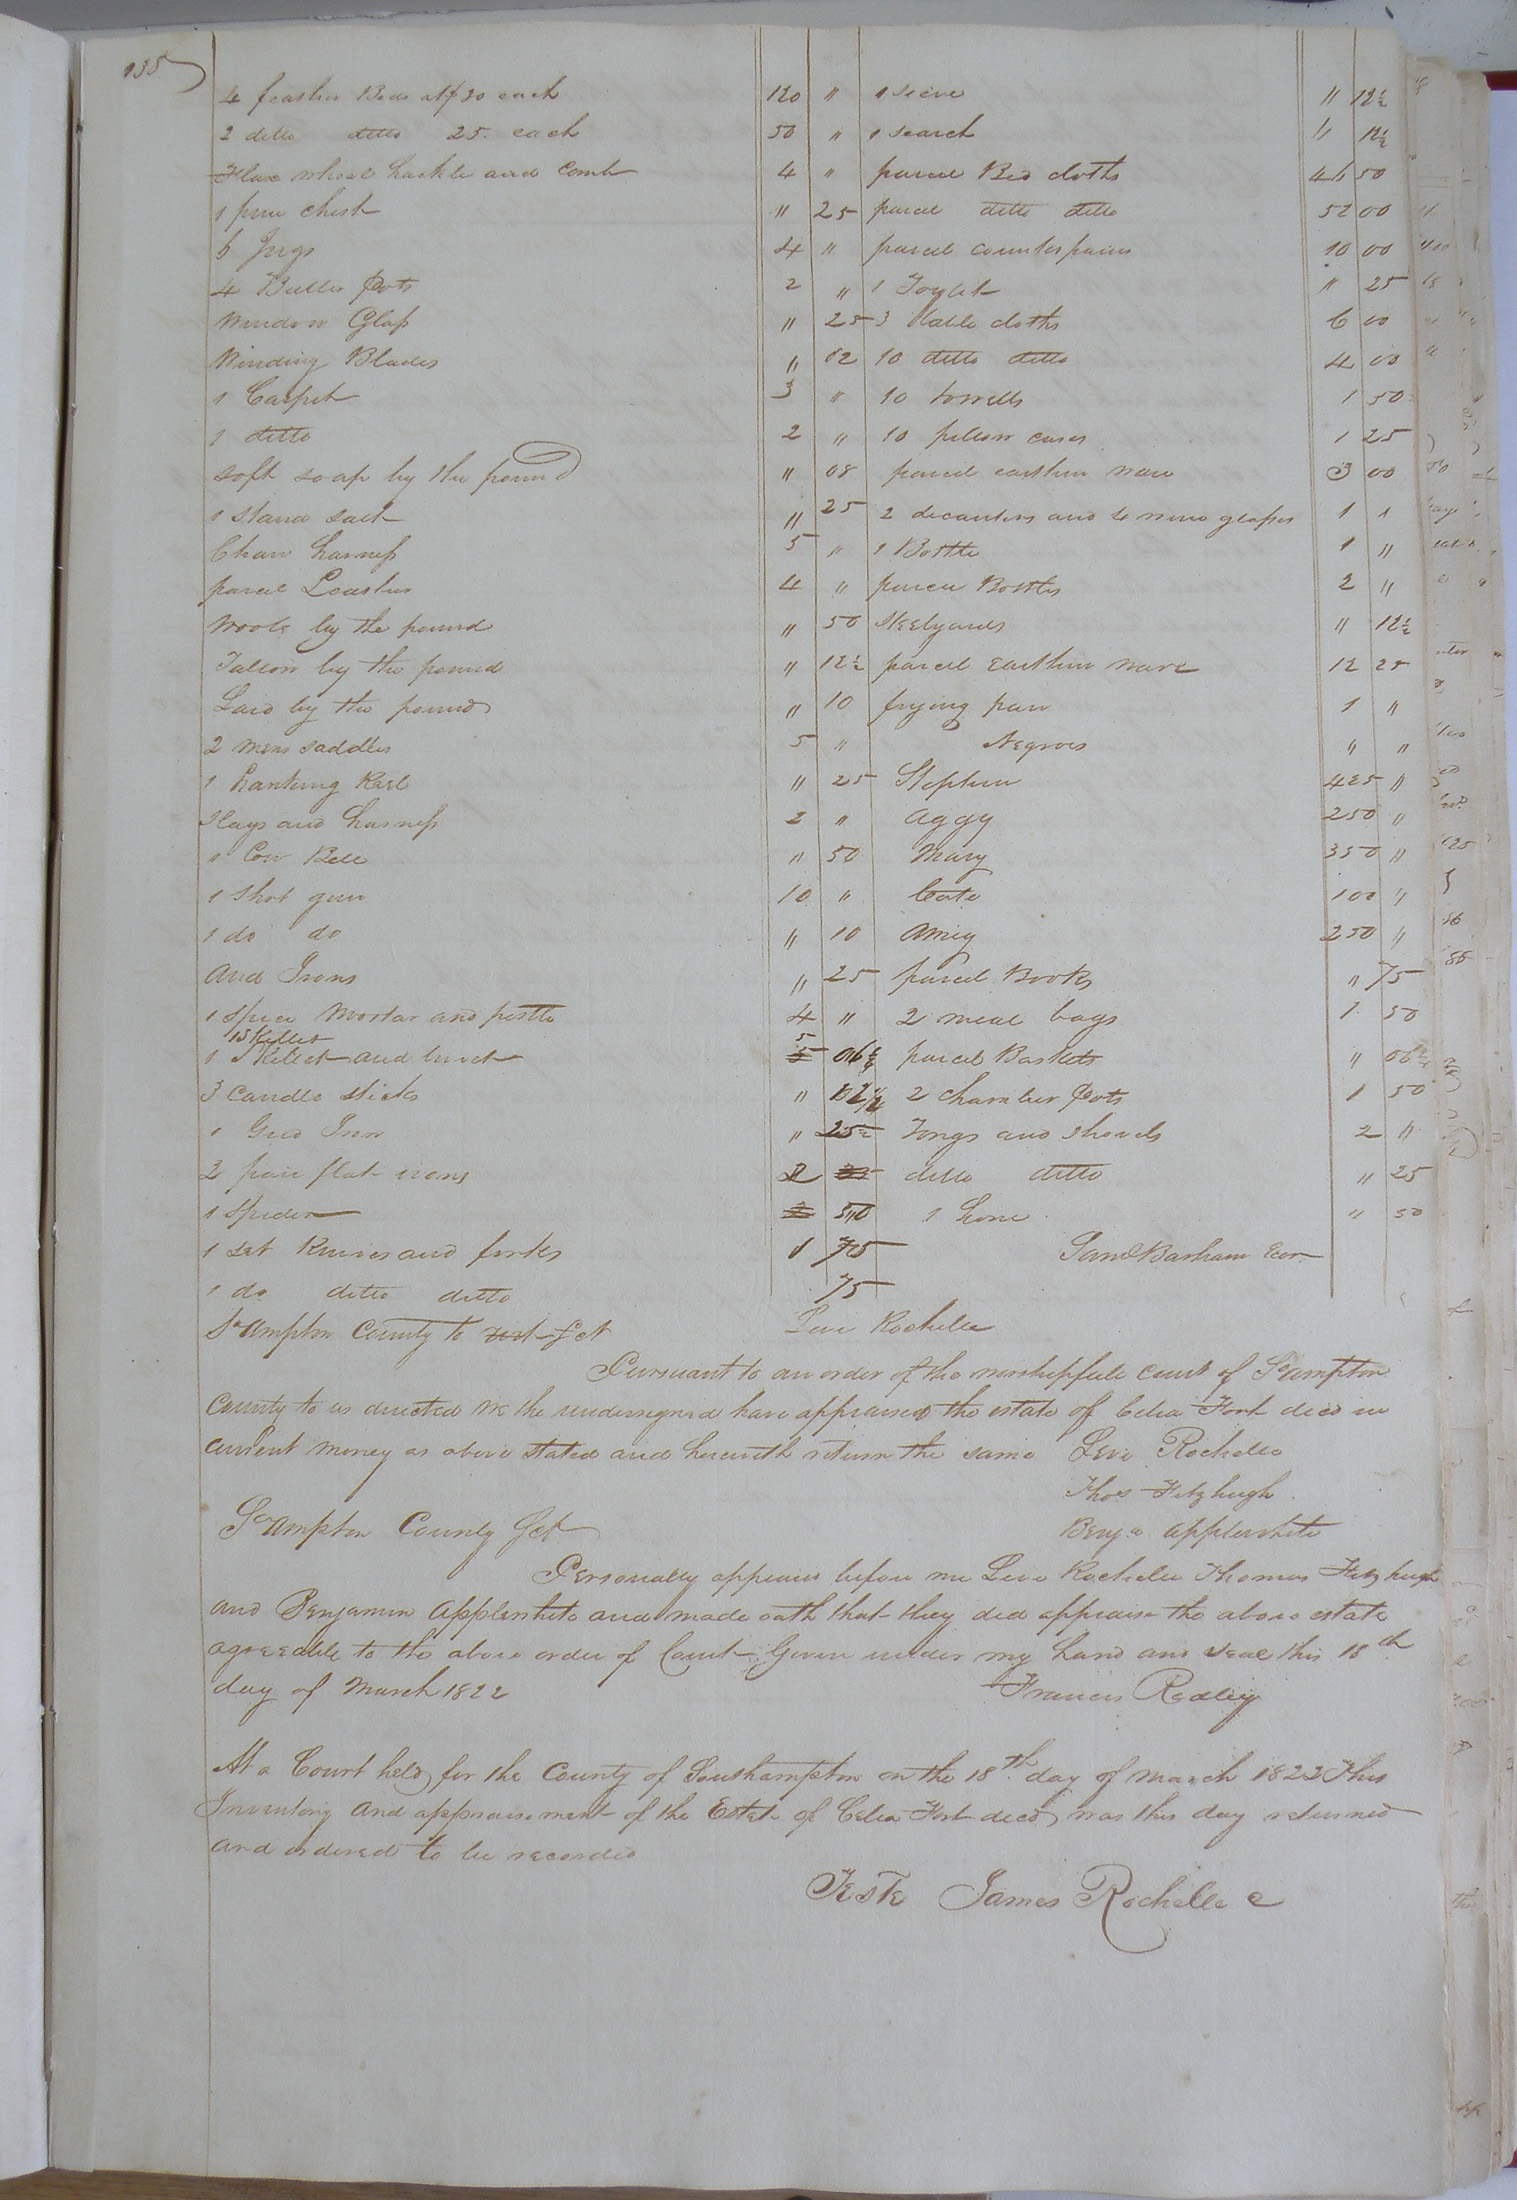 135
4 feather Beds at $30 each 120 "
2 ditto ditto 25 each 50 "
Flax wheel hackle and Comb 4 "
1 pine chest " 25
6 Jugs 4 "
4 Butter Pots 2 "
Window Glass " 25
Winding Blades " 12
1 Carpet 3 "
1 ditto 2 "
soft soap by the pound " 08
1 stand salt " 25
Chair harness 5 "
parcel Leather 4 "
Wool by the pound " 50
Tallow by the pound " 12½
Lard by the pound " 10
2 mens saddles 5 "
1 hanking Reel " 25
Slays and harness 2 "
1 Cow Bell " 50
1 shot gun 10 "
1 do do " 10
And Irons " 25
1 spice Mortar and pestle 4 "
1 Skillet
1 Skillet and trivet 5 06¼
3 Candle sticks " 12½
1 Grid Iron " 25
2 pair flat irons
1 spider 50
1 set Knives and forks 1 75
1 do ditto ditto 75
1 sieve " 12½
1 search " 12½
parcel Bed cloths 46 50
parcel ditto ditto 52 00
parcel counterpains 10 00
1 Toylet " 25
3 table cloths 6 00
10 ditto ditto 4 00
10 towells 1 50
10 pillow cases 1 25
parcel earthen ware 3 00
2 decanters and 4 wine glasses 1 "
1 Bottle 1 "
parcel Bottles 2 "
Steelyards " 12½
parcel Earthen ware 12 25
frying pan 1 "
Negroes " "
Stephen 425 "
Aggy 250 "
Mary 350 "
Cate 100 "
Amey 250 "
parcel Books " 75
2 meal bags 1 50
parcel Baskets " 06¼
2 chamber Pots 1 50
Tongs and shovels 2 "
ditto ditto " 25
1 hone " 50
Saml Barham Exor
So ampton County to Sct Levi Rochelle
Pursuant to an order of the worshipfull court of So ampton
County to us directed We the undersigned have appraised the estate of Celia Fort decd in
current money as above stated and herewith return the same Levi Rochelle
Thos Fitzhugh
Benja Applewhite
So ampton County Sct
Personally appeared before me Levi Rochelle Thomas Fitzhugh
and Benjamin Applewhite and made oath that they did appraise the above estate
agreeable to the above order of Court Given under my hand and seal this 18th
day of March 1822 Francis Ridley
At a Court held for the County of Southampton on the 18th day of March 1822 This
Inventory and appraisement of the Estate of Celia Fort decd was this day returned
and ordered to be recorded
Teste James Rochelle c